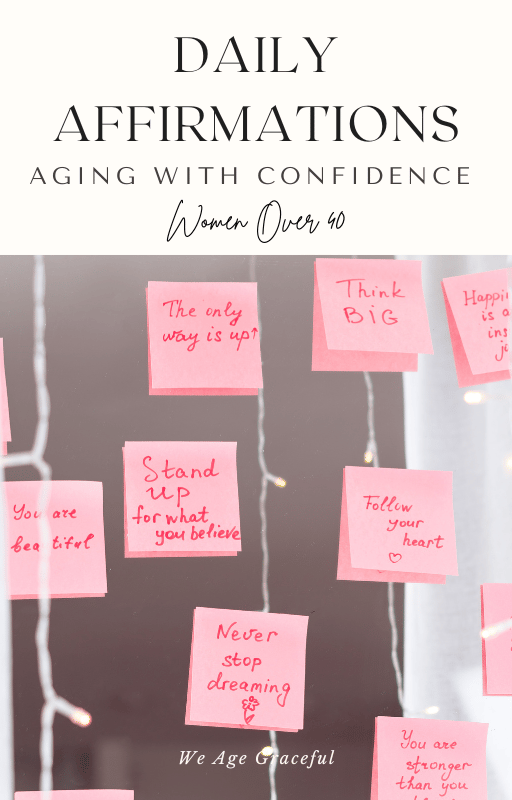 DAILY
AFFIRMATIONS
AGING WITH CONFIDENCE
Women Over 40
The only
way is up↑
Think
BIG
is a
Stand
up
for what
you believe
You are
beautiful
Follow
your
heart
Never
stop
dreaming
You are
stronger
than you
We Age Graceful